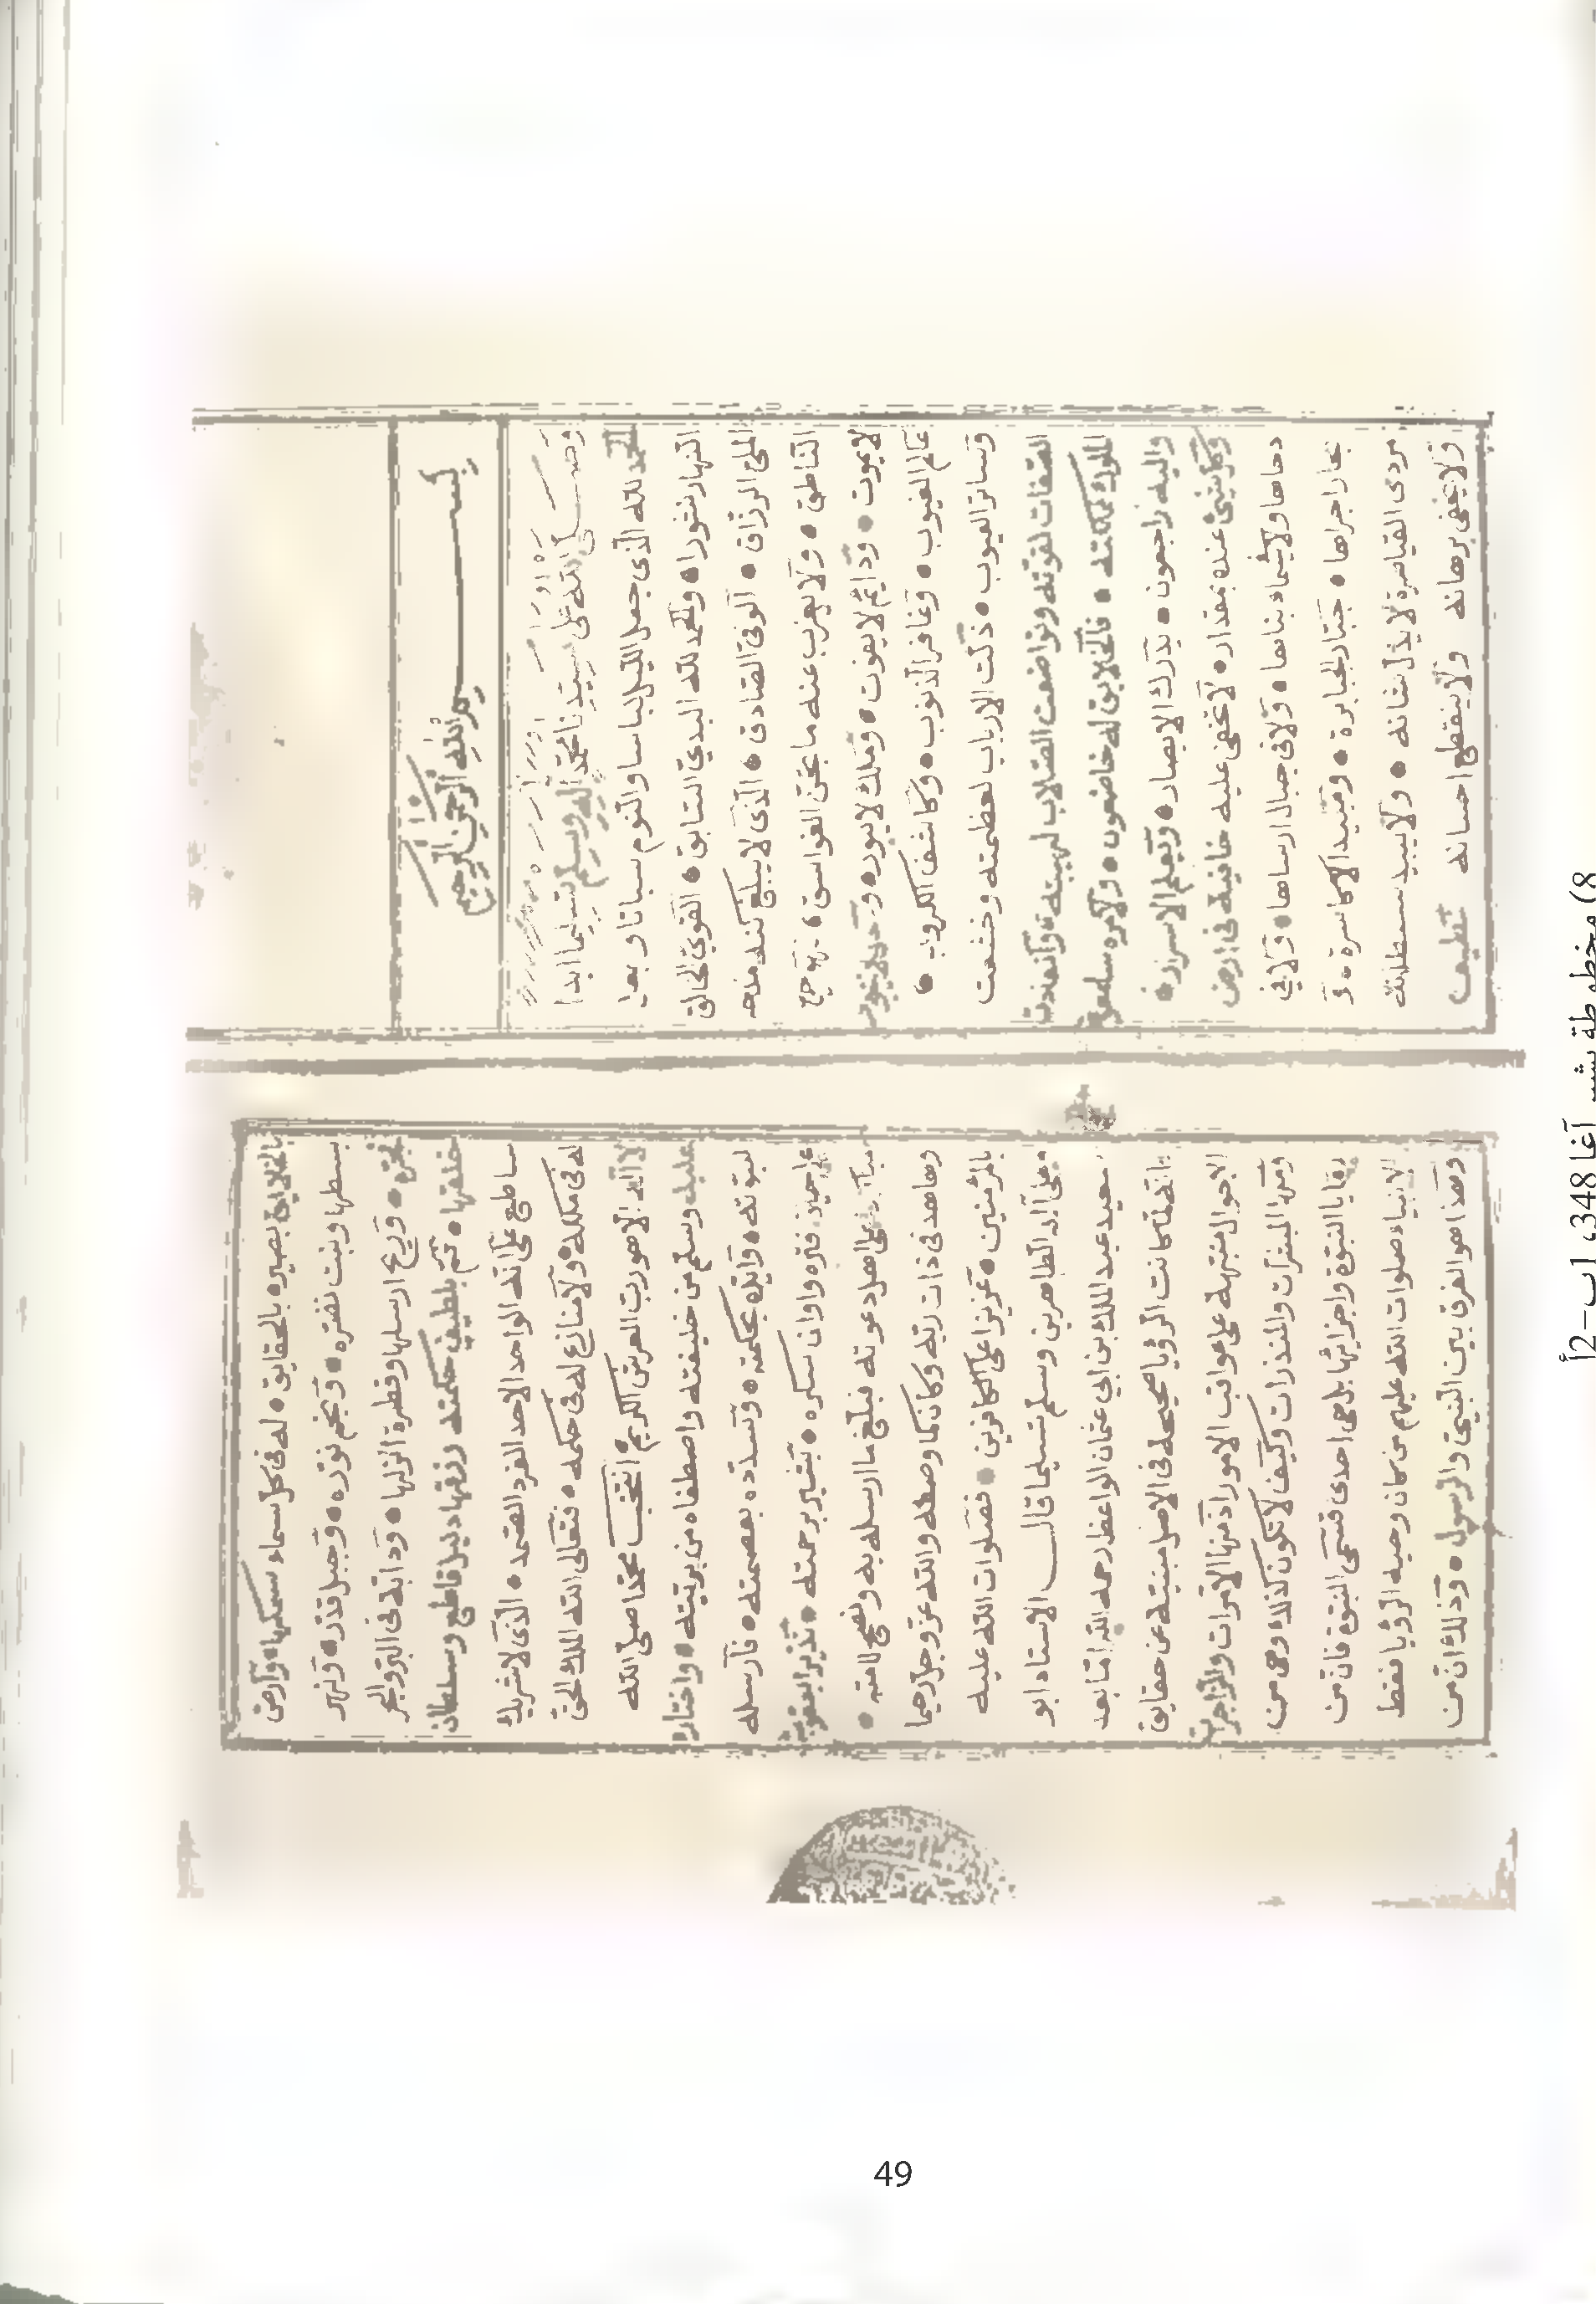 بسم الله الرحمن الرحيم
وصلى الله على سيدنا محمد وآله وسلم تسليما ابدا
الحمد لله الذى جعل الليل لباسا والنوم سباتا وبعد
النهار نشورا • والحمد لله البدئ السابق • القوى الخالق
الملى الرزاق • الوفى الصادق • الذى لا يبلغ كنه مدحه
الناطق • ولا يعزب عنه ما بجن الغواسق •
لا يموت • ودايم لا يفوت • وملك لا يبور •
عالم الغيوب • وغافر الذنوب • وكاشف الكروب •
وساتر العيوب • ذلت الارباب لعظمته وخشعت
الصعاب لقوته وتواضعت الصلاب لهيبته وانقادت
الملوك لملكته • فالخلايق له خاضعون • ولامره سامعون
واليه راجعون • يدرك الابصار • ويعلم الاسرار •
وكل شئ عنده بمقدار • لا تخفى عليه خافية فى ارض
دحاها ولا سماء بناها • ولا فى جبال ارساها • ولا فى
بحار اجراها • جبار الجبابرة • ومبيد الاكاسرة • و
مردى القياصرة لا يذل شانه • ولا يبيد سلطانه
ولا يخفى برهانه ولا ينقطع احسانه
بالخلايق بصيره بالحقايق • له فى كل سماء سمكها • وارض
بسطها ونبت نضره • ونجم نوره • وجبل قدره • ونهر
فجره • وريح ارسلها وقطرة انزلها • ودابة فى البر والبحر
خلقها • ثم بلطيف حكمته رزقها دليل قاطع وسلطان
ساطع على انه الواحد الاحد الفرد الصمد • الذى لا شريك
له فى ملكه • ولا منازع له فى حكمه • فتعالى الله الملك الحق
لا اله الا هو رب العرش الكريم انتخب محمدا صلى الله
عليه وسلم من خليقته واصطفاه من بريته • واختاره
لنبوته • وايده بحكمته • وسدده بعصمته • فارسله
على حين فتره واوان سكره • بشير برحمته • نذير بعقوبته
اهل دعوته فبلغ ما ارسله به ونصح لامته •
وجاهد فى ذات ربه وكان كما وصفه والله عز وجل رحيما
بالمؤمنين • عزيزا على الكافرين • فصلوات الله عليه
وعلى آله الطاهرين وسلم تسليما قال الاستاد ابو
سعيد عبد الملك بن ابي عثمان الواعظ رحمه الله اما بعد
فانه لما كانت الرؤيا صحيحة فى الاصل مبنية عن حقايق
الاحوال منبهة على عواقب الامور اذ منها الآمرات والزاجرات
ومنها المبشرات والمنذرات وكيف لا تكون كذلك وهى من
بقايا النبوة واجزائها بل هى احدى قسمى النبوة فان من
الانبياء صلوات الله عليهم من كان وحيه الرؤيا فقط
وهذا هو الفرق بين النبى والرسول • وذلك ان من
8) مخطوطة بشير آغا 348، 1ب-2أ
49